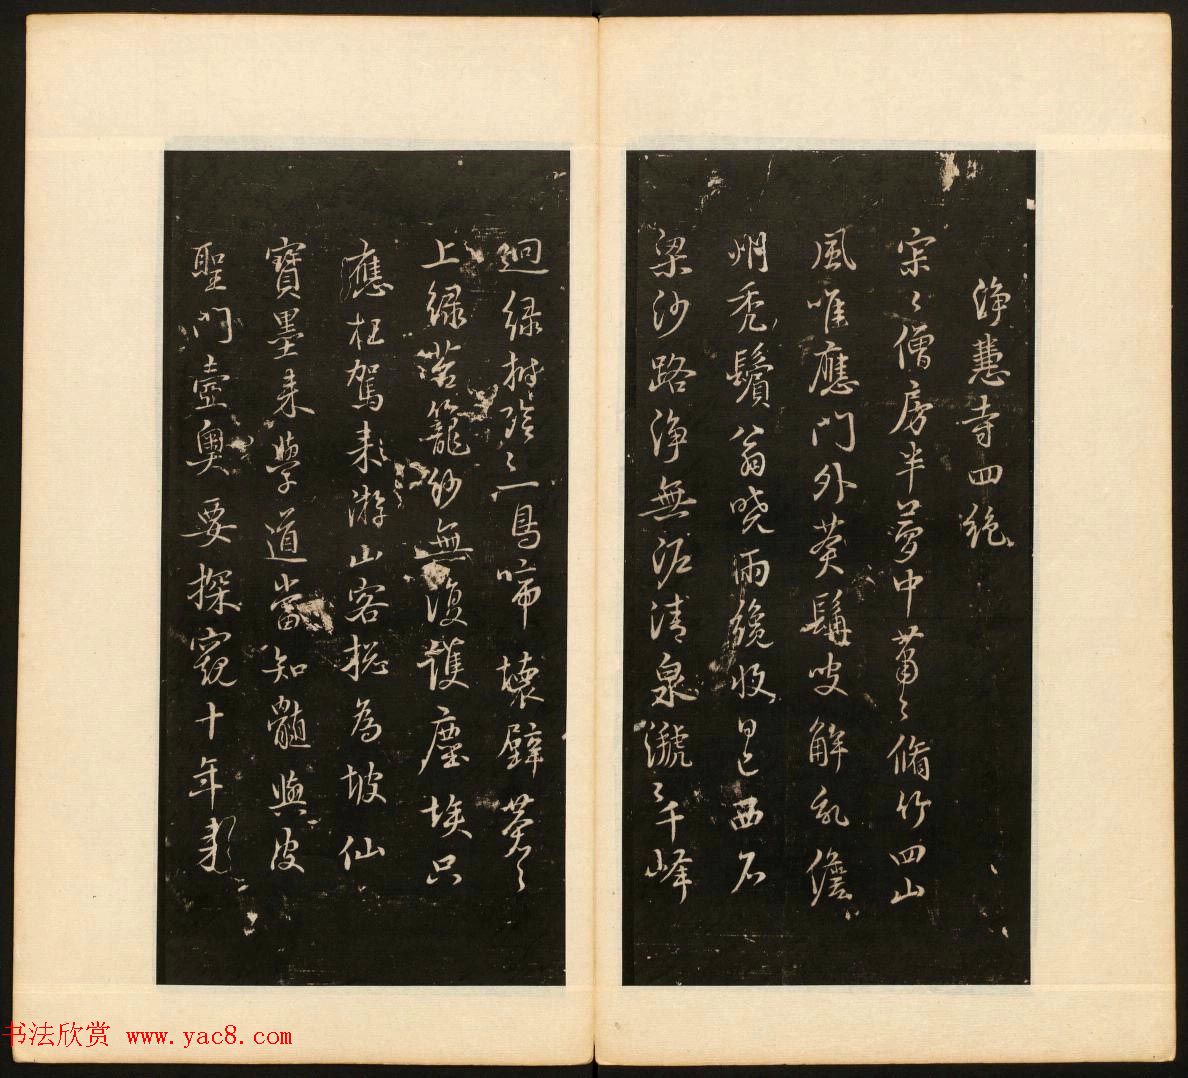 淨慧寺四絕
寂〻僧房半夢中蕭〻脩竹四山
風唯應門外蒼髯叟解儋
州禿鬢翁曉雨纔收日已西石
梁沙路淨無泥清泉㶁〻千峰
迴綠樹陰〻一鳥啼壞壁蒼〻
上綠苔籠紗無復護塵埃只
應枉駕來游山客總為坡仙
寶墨來學道當知髓與皮
聖門壼奧要探窺十年
书法欣赏 www.yac8.com